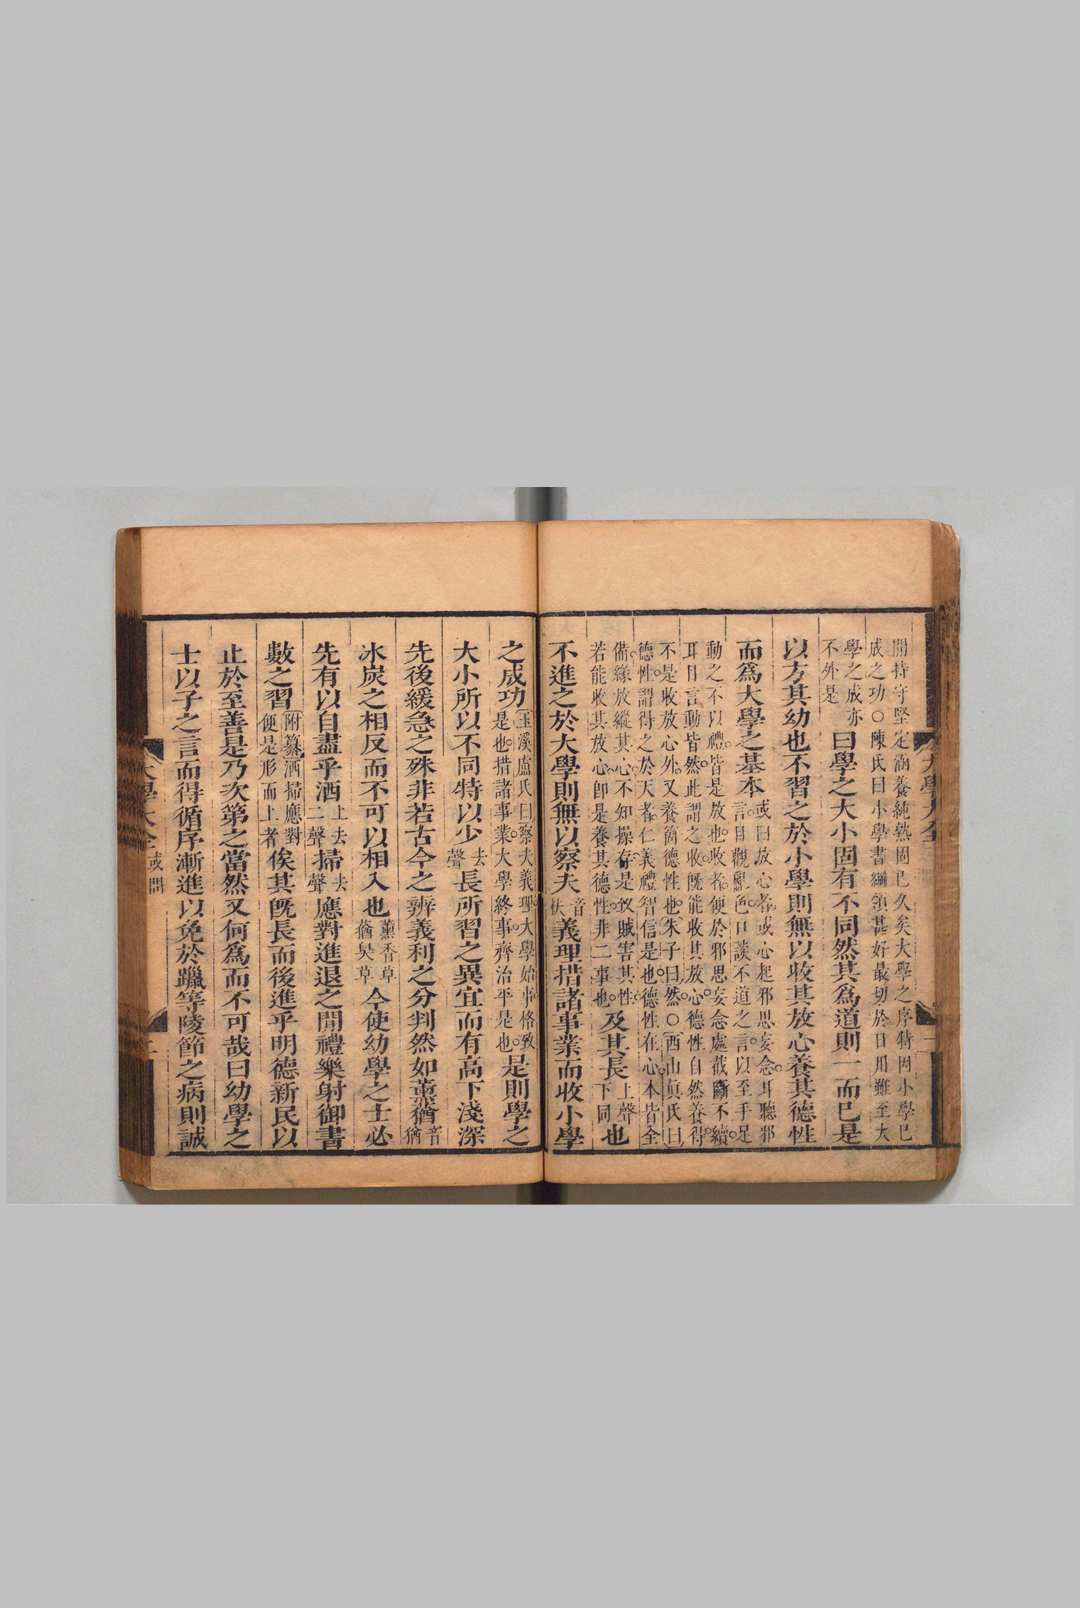 間持守堅定涵養純熟固已久矣大學之序特因小學已
成之功○陳氏曰小學書綱領甚好最切於日用雖至大
學之成亦
不外是
曰學之大小固有不同然其為道則一而已是
以方其幼也不習之於小學則無以收其放心養其德性
而為大學之基本
或曰放心者或心起邪思妄念耳聽邪
言目觀亂色口談不道之言以至手足
動之不以禮皆是放也收者便於邪思妄念處截斷不續
耳目言動皆然此謂之收既能收其放心德性自然養得
不是收放心外又養箇德性也朱子曰然○西山真氏曰
德性謂得之於天者仁義禮智信是也德性在心本皆全
備緣放縱其心不知操存是致賊害其性
若能收其放心即是養其德性非二事也
及其長
上聲
下同
也
不進之於大學則無以察夫
音
扶
義理措諸事業而收小學
之成功
玉溪盧氏曰察夫義理大學始事格致
是也措諸事業大學終事齊治平是也
是則學之
大小所以不同特以少
去
聲
長所習之異宜而有高下淺深
先後緩急之殊非若古今之辨義利之分判然如薰蕕
音
猶
冰炭之相反而不可以相入也
薰香草
蕕臭草
今使幼學之士必
先有以自盡乎洒
上去
二聲
掃
去
聲
應對進退之間禮樂射御書
數之習
附纂洒掃應對
便是形而上者
俟其既長而後進乎明德新民以
止於至善是乃次第之當然又何為而不可哉曰幼學之
士以子之言而得循序漸進以免於躐等陵節之病則誠
大學大全 或問 二